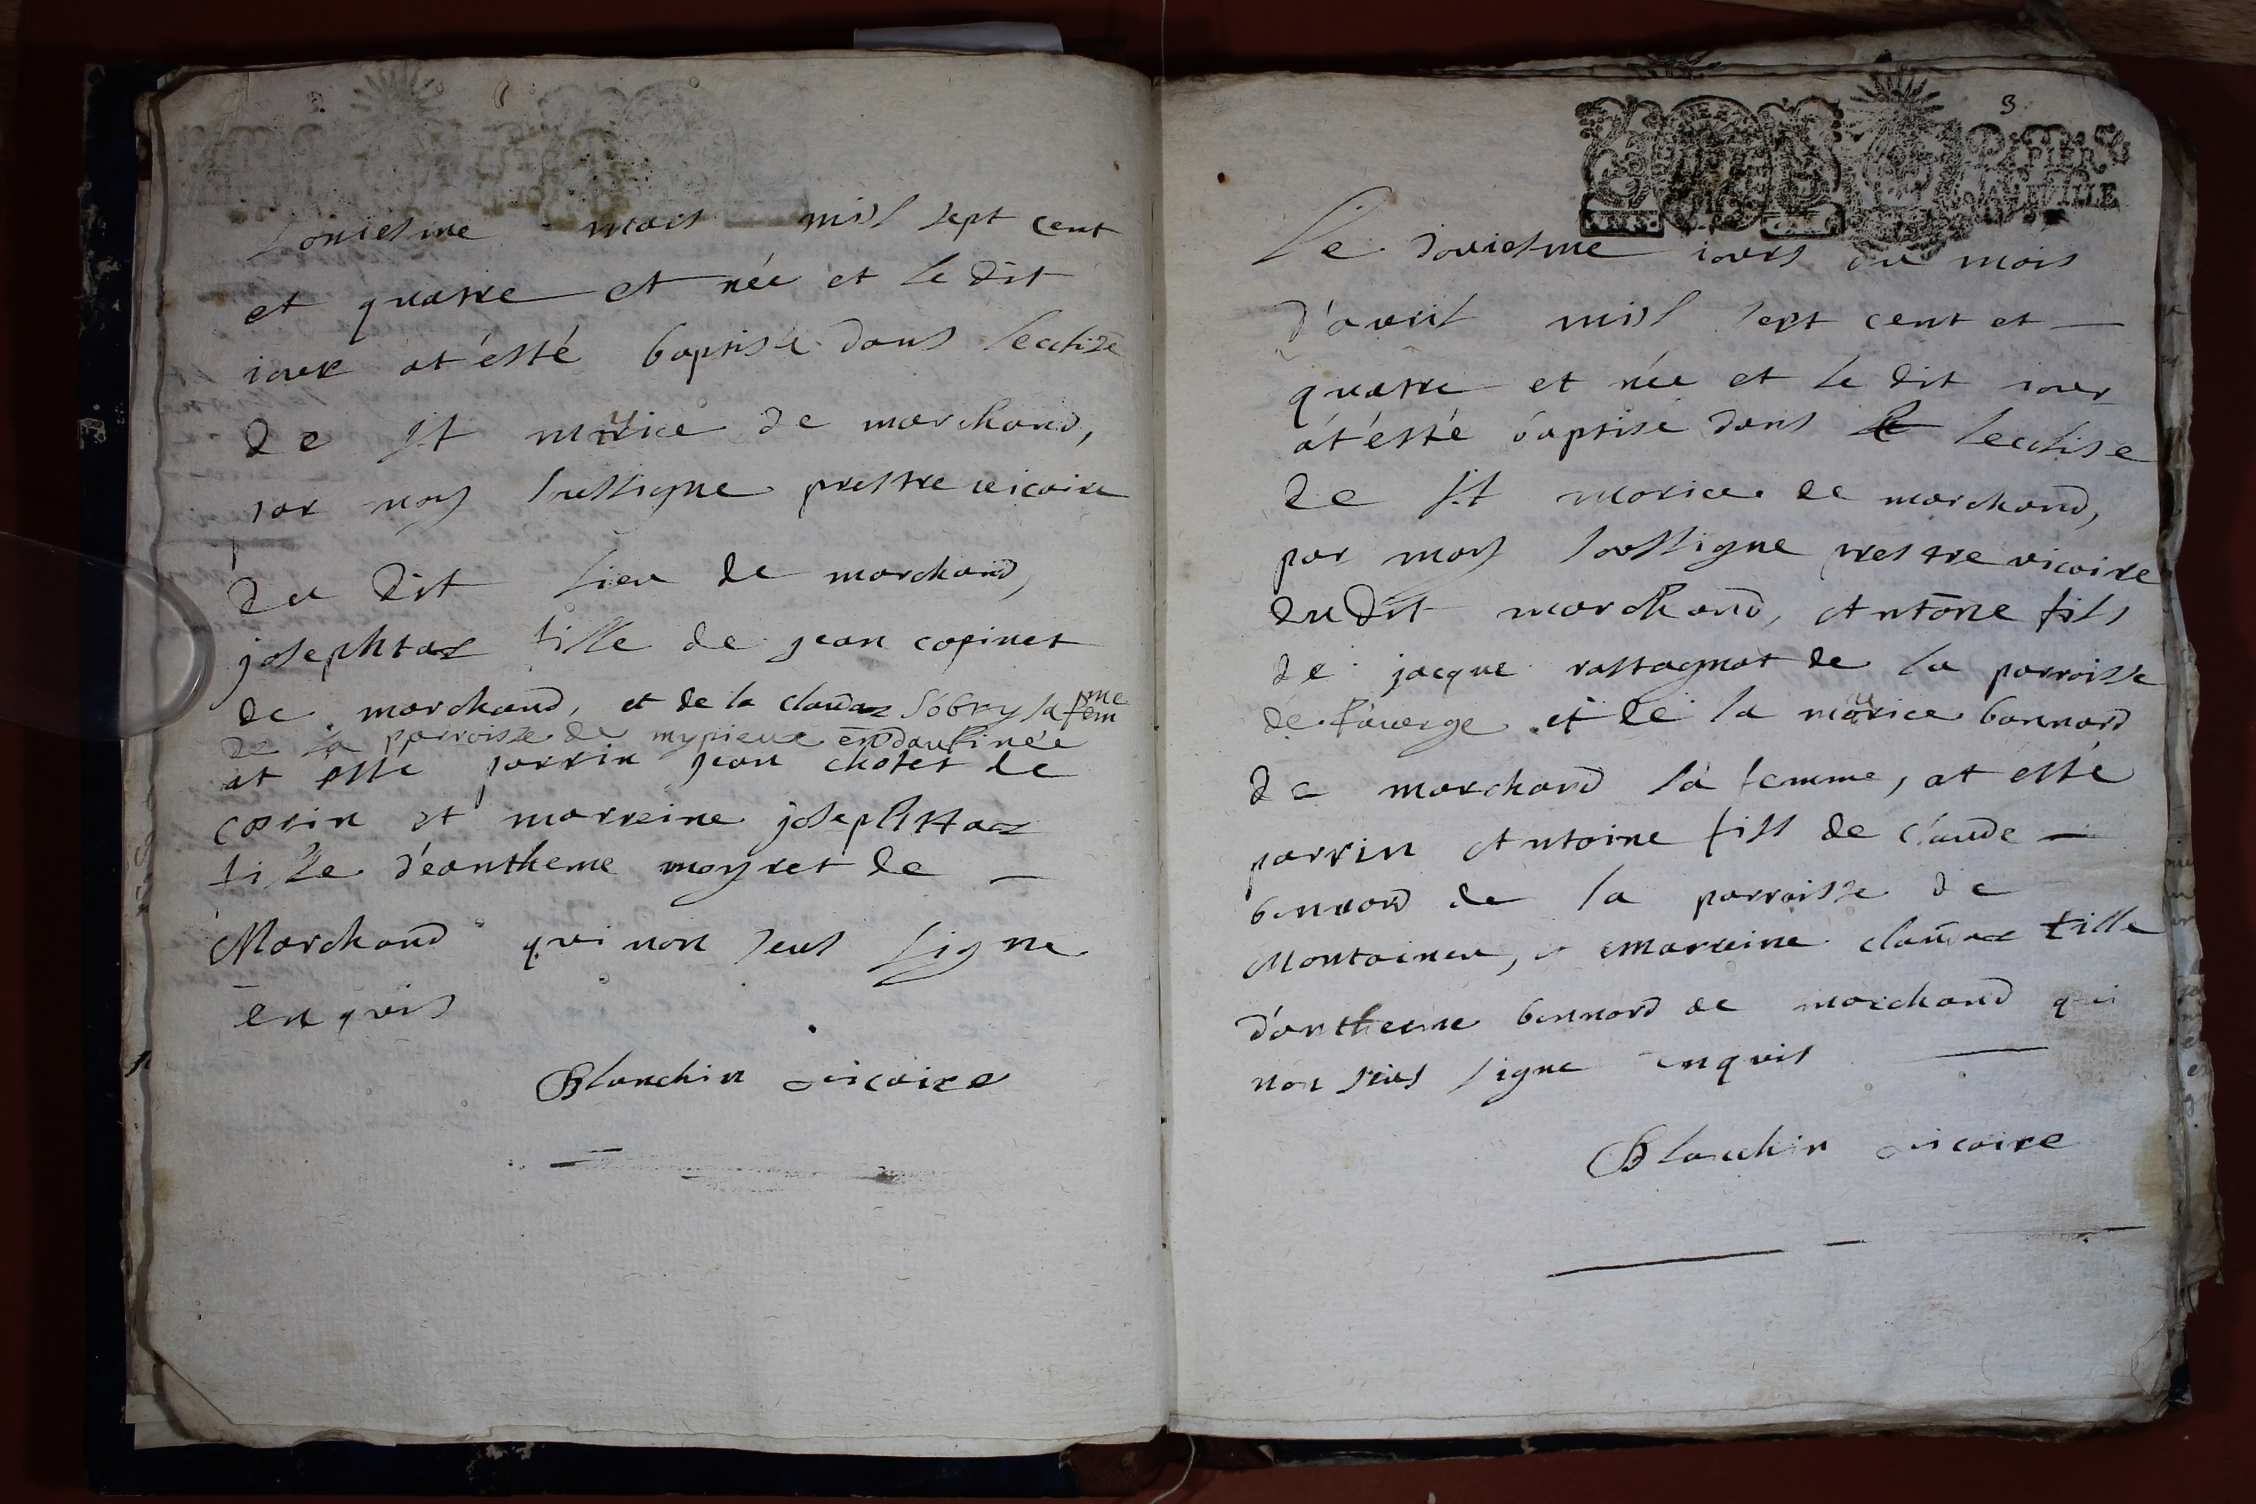 mars mil sept cent
et quatre et née et le dit
iour at'esté baptisé dans lecclise
de St maurice de marchand,
par moy soussigne prestre vicaire
du dit lieu de marchand,
josephtaz fille de jean copinet
de marchand, et de la claudaz sobry sa femme
de la parroisse de mypieux en daufinée
at esté parrin jean chotet de
corin et marreine josephtaz
fille d'éantheme moyret de —
Marchand qui non seus signe
enquis
Blanchin vicaire
3
PAPIER
Le iours du mois
d'avril mil sept cent et —
quatre et née et le dit iour
at'esté baptisé dans lecclise
de St morice de marchand,
par moy soussigne prestre vicaire
dudit marchand, Antone fils
de jacque rastagnat de la parroisse
de et de la maurice bonnard
de marchand sa femme, at esté
parrin Antoine fils de claude —
bonnard de la parroisse de
Montaineu, et marreine claudaz fille
d'antheme bonnard de marchand qui
non seus signe enquis —
Blanchin vicaire